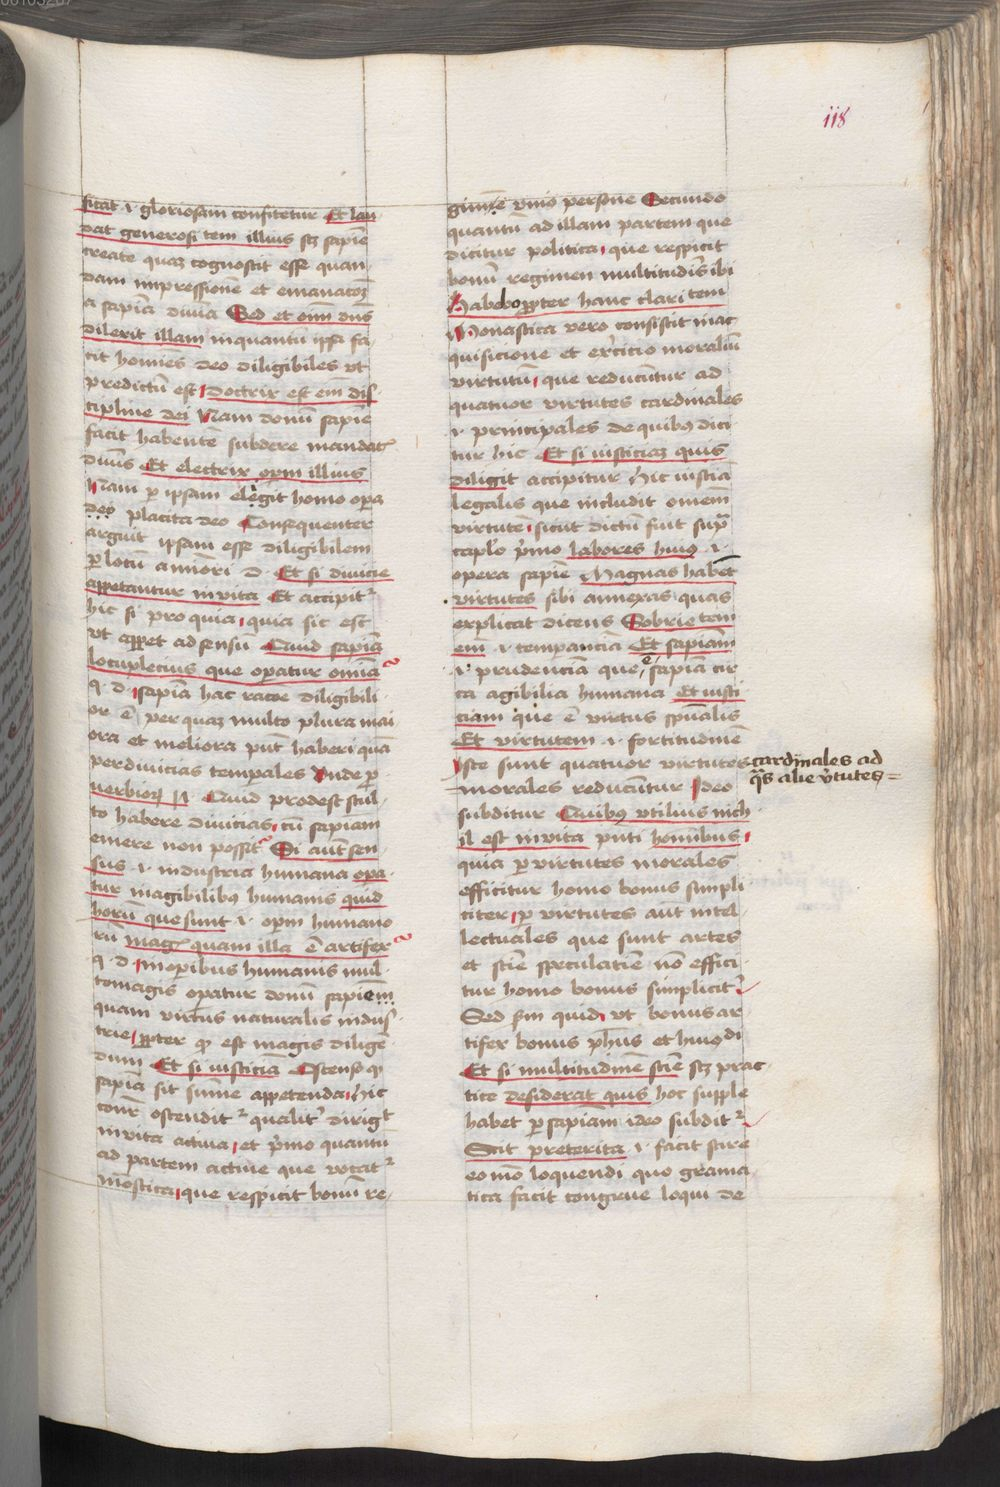 118
ficat .i. gloriosam confitetur Et lau
dat generositatem illius scz sapiē
create quaz cognoscit esse quan
dam impressionē et emanacōē
a sapīa diuīa Sed et oīm dn̄s
dilexit illam inquantū ipsa fa
cit homīes deo diligibiles vt
predictū est Doctrix est eīm dis
cipline dei Nam donū sapiē
facit habentē subdere mandat
diuīs Et electrix opm illius
Nam p ipsam elegit homo opa
deo placita deo Consequenter
arguit ipsam esse diligibilem
p locū a mīori d. Et si diuicie
appetantur in vita Et accipit᷑
hic si pro quia quia sic est
vt appet ad sensū Quid sapīa
locupletius que opatur omīa
q. d. sapīa hac racōe diligibili
or ē per quaz multo plura mai
ora et meliora pn̄t haberi quā
per diuicias temporales Vnde p
uerbiorꝫ Quid prodest stul
to habere diuicias cū sapīam
emere non possit Si aut̄ sen
sus .i. industria humana opa
tur in agibilibꝰ humanis quid
horū que sunt .i. opm humano
rū magꝭ quam illa ē artifex
q. d. in opibus humanis mul
tomagis opatur donū sapiē
quam virtus naturalis indus
trie ppter qd est magis diligē
dum Et si iusticiā Ostenso qꝫ
sapīa sit sūme appetenda hic
cōnr ostendit᷑ qualit᷑ dirigit
in vita actiua et pͥmo quantū
ad partem actiue que vocat᷑
mōstica que respicit bonū re
gimīe vnīo persone Secundo
quantū ad illam partem que
dicitur politica que respicit
bonū regimen multitudīs ibi
Habebo ppter hanc claritatem
Monastica vero consistit in ac
quisicione et exͨcitio moraliū
virtutū que reducuntur ad
quatuor virtutes cardinales
.i. principales de quibꝰ dici
tur hic Et si iusticiaz quis
diligit accipitur hic iustīa
legalis que includit omēm
virtutē sicut dictū fuit supͣ
caplͦo pͥmo labores huiꝰ .i.
opera sapīe Magnas habet
virtutes sibi annexas quas
explicat dicens Sobrietatem
em̄ .i. temperanciā Et sapīam
.i. prudenciā que ē sapīa cir
ca agibilia humana Et iusti
ciam que ē virtus spūalis
Et virtutem .i. fortitudinē
Iste sunt quatuor virtutes
cardinales ad
qͣs alie vͬtutes =
morales reducūtur Ideo
subditur Quibꝰ vtilius nich
il est in vita puti hominibus
quia p virtutes morales
efficitur homo bonus simpli
citer p virtutes aut̄ intel
lectuales que sunt artes
et scīe speculatīe nō effici
tur homo bonus simplicit᷑
Sed sm̄ quid vt bonus ar
tifex bonus ph̄us et huiꝰdi
Et si multitudinē scīe scz prac
tice desiderat quis hoc supple
habet p sapīam ideo subdit᷑
Scit preterita .i. facit scire
eo mō loquendi quo grama
tica facit congrue loqui de